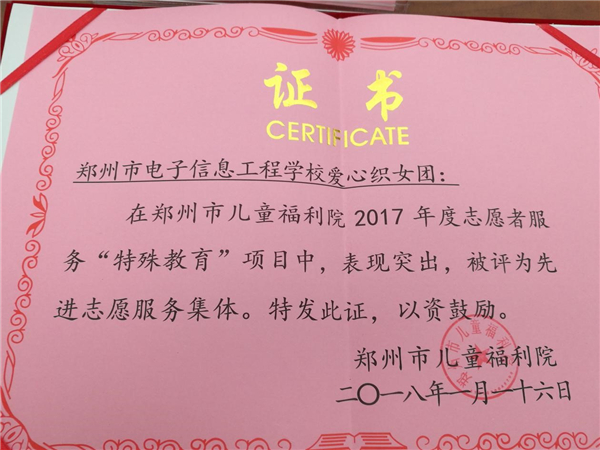 证书
CERTIFICATE
郑州市电子信息工程学校爱心织女团：
在郑州市儿童福利院2017年度志愿者服
务“特殊教育”项目中，表现突出，被评为先
进志愿服务集体。特发此证，以资鼓励。
郑州市儿童福利院
二〇一八年一月一十六日
郑州市儿童福利院